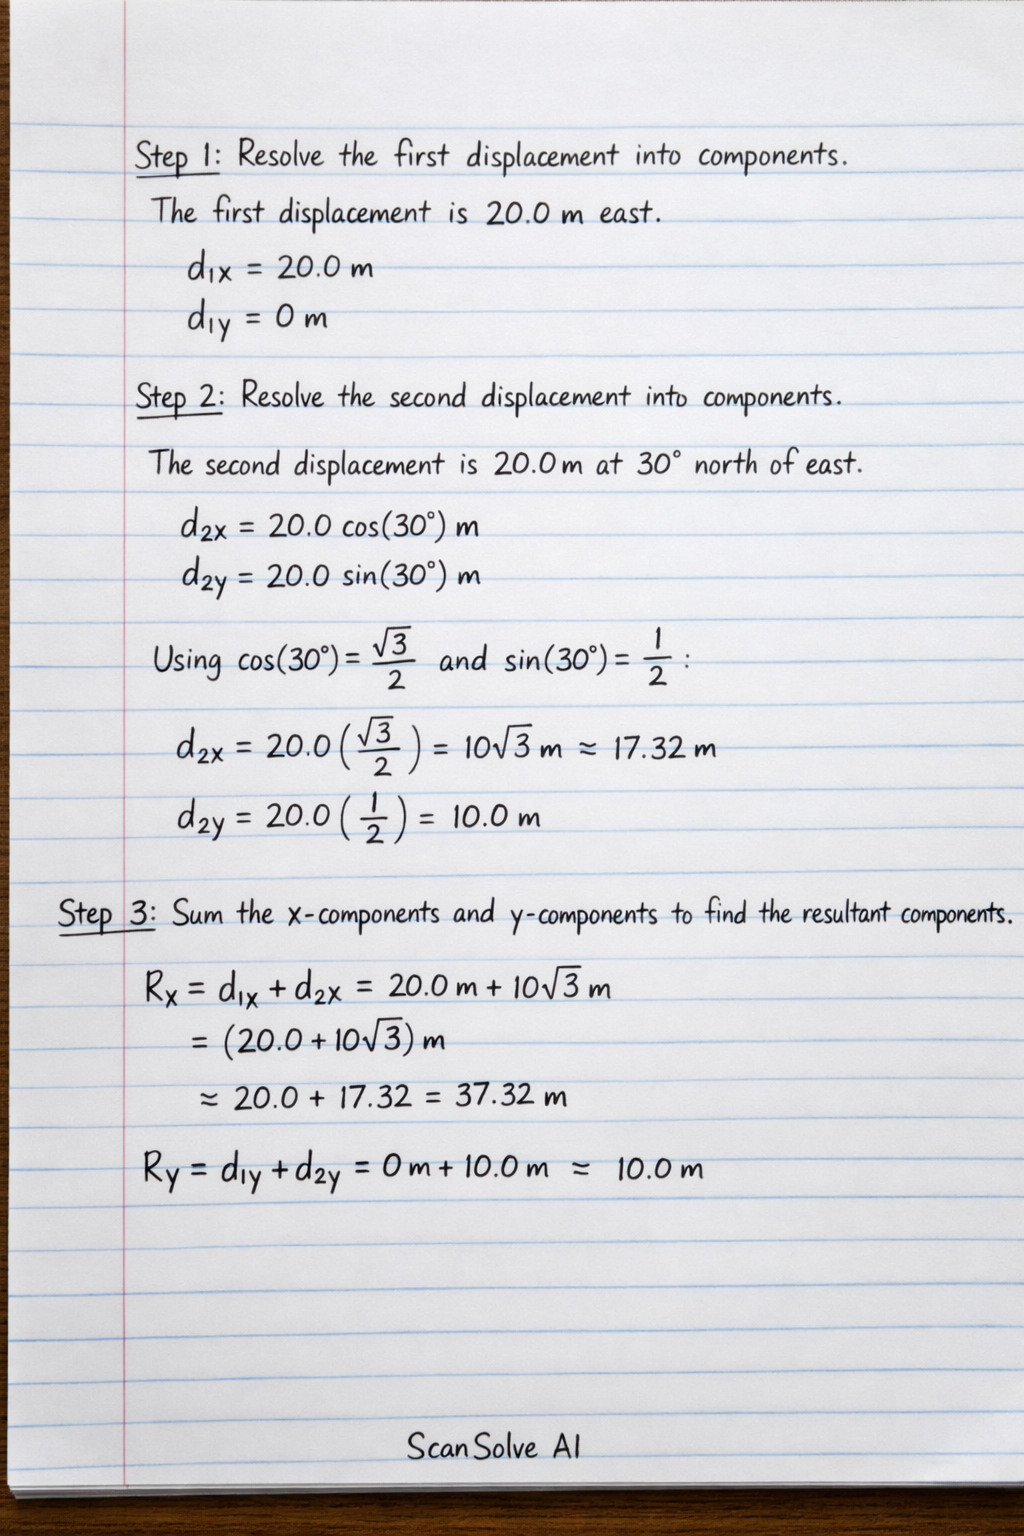 Step 1: Resolve the first displacement into components.
The first displacement is 20.0 m east.
d₁ₓ = 20.0 m
d₁y = 0 m
Step 2: Resolve the second displacement into components.
The second displacement is 20.0 m at 30° north of east.
d₂ₓ = 20.0 cos(30°) m
d₂y = 20.0 sin(30°) m
Using cos(30°) = √3/2 and sin(30°) = 1/2 :
d₂ₓ = 20.0 (√3/2) = 10√3 m ≈ 17.32 m
d₂y = 20.0 (1/2) = 10.0 m
Step 3: Sum the x-components and y-components to find the resultant components.
Rₓ = d₁ₓ + d₂ₓ = 20.0 m + 10√3 m
= (20.0 + 10√3) m
≈ 20.0 + 17.32 = 37.32 m
Ry = d₁y + d₂y = 0 m + 10.0 m = 10.0 m
ScanSolve AI